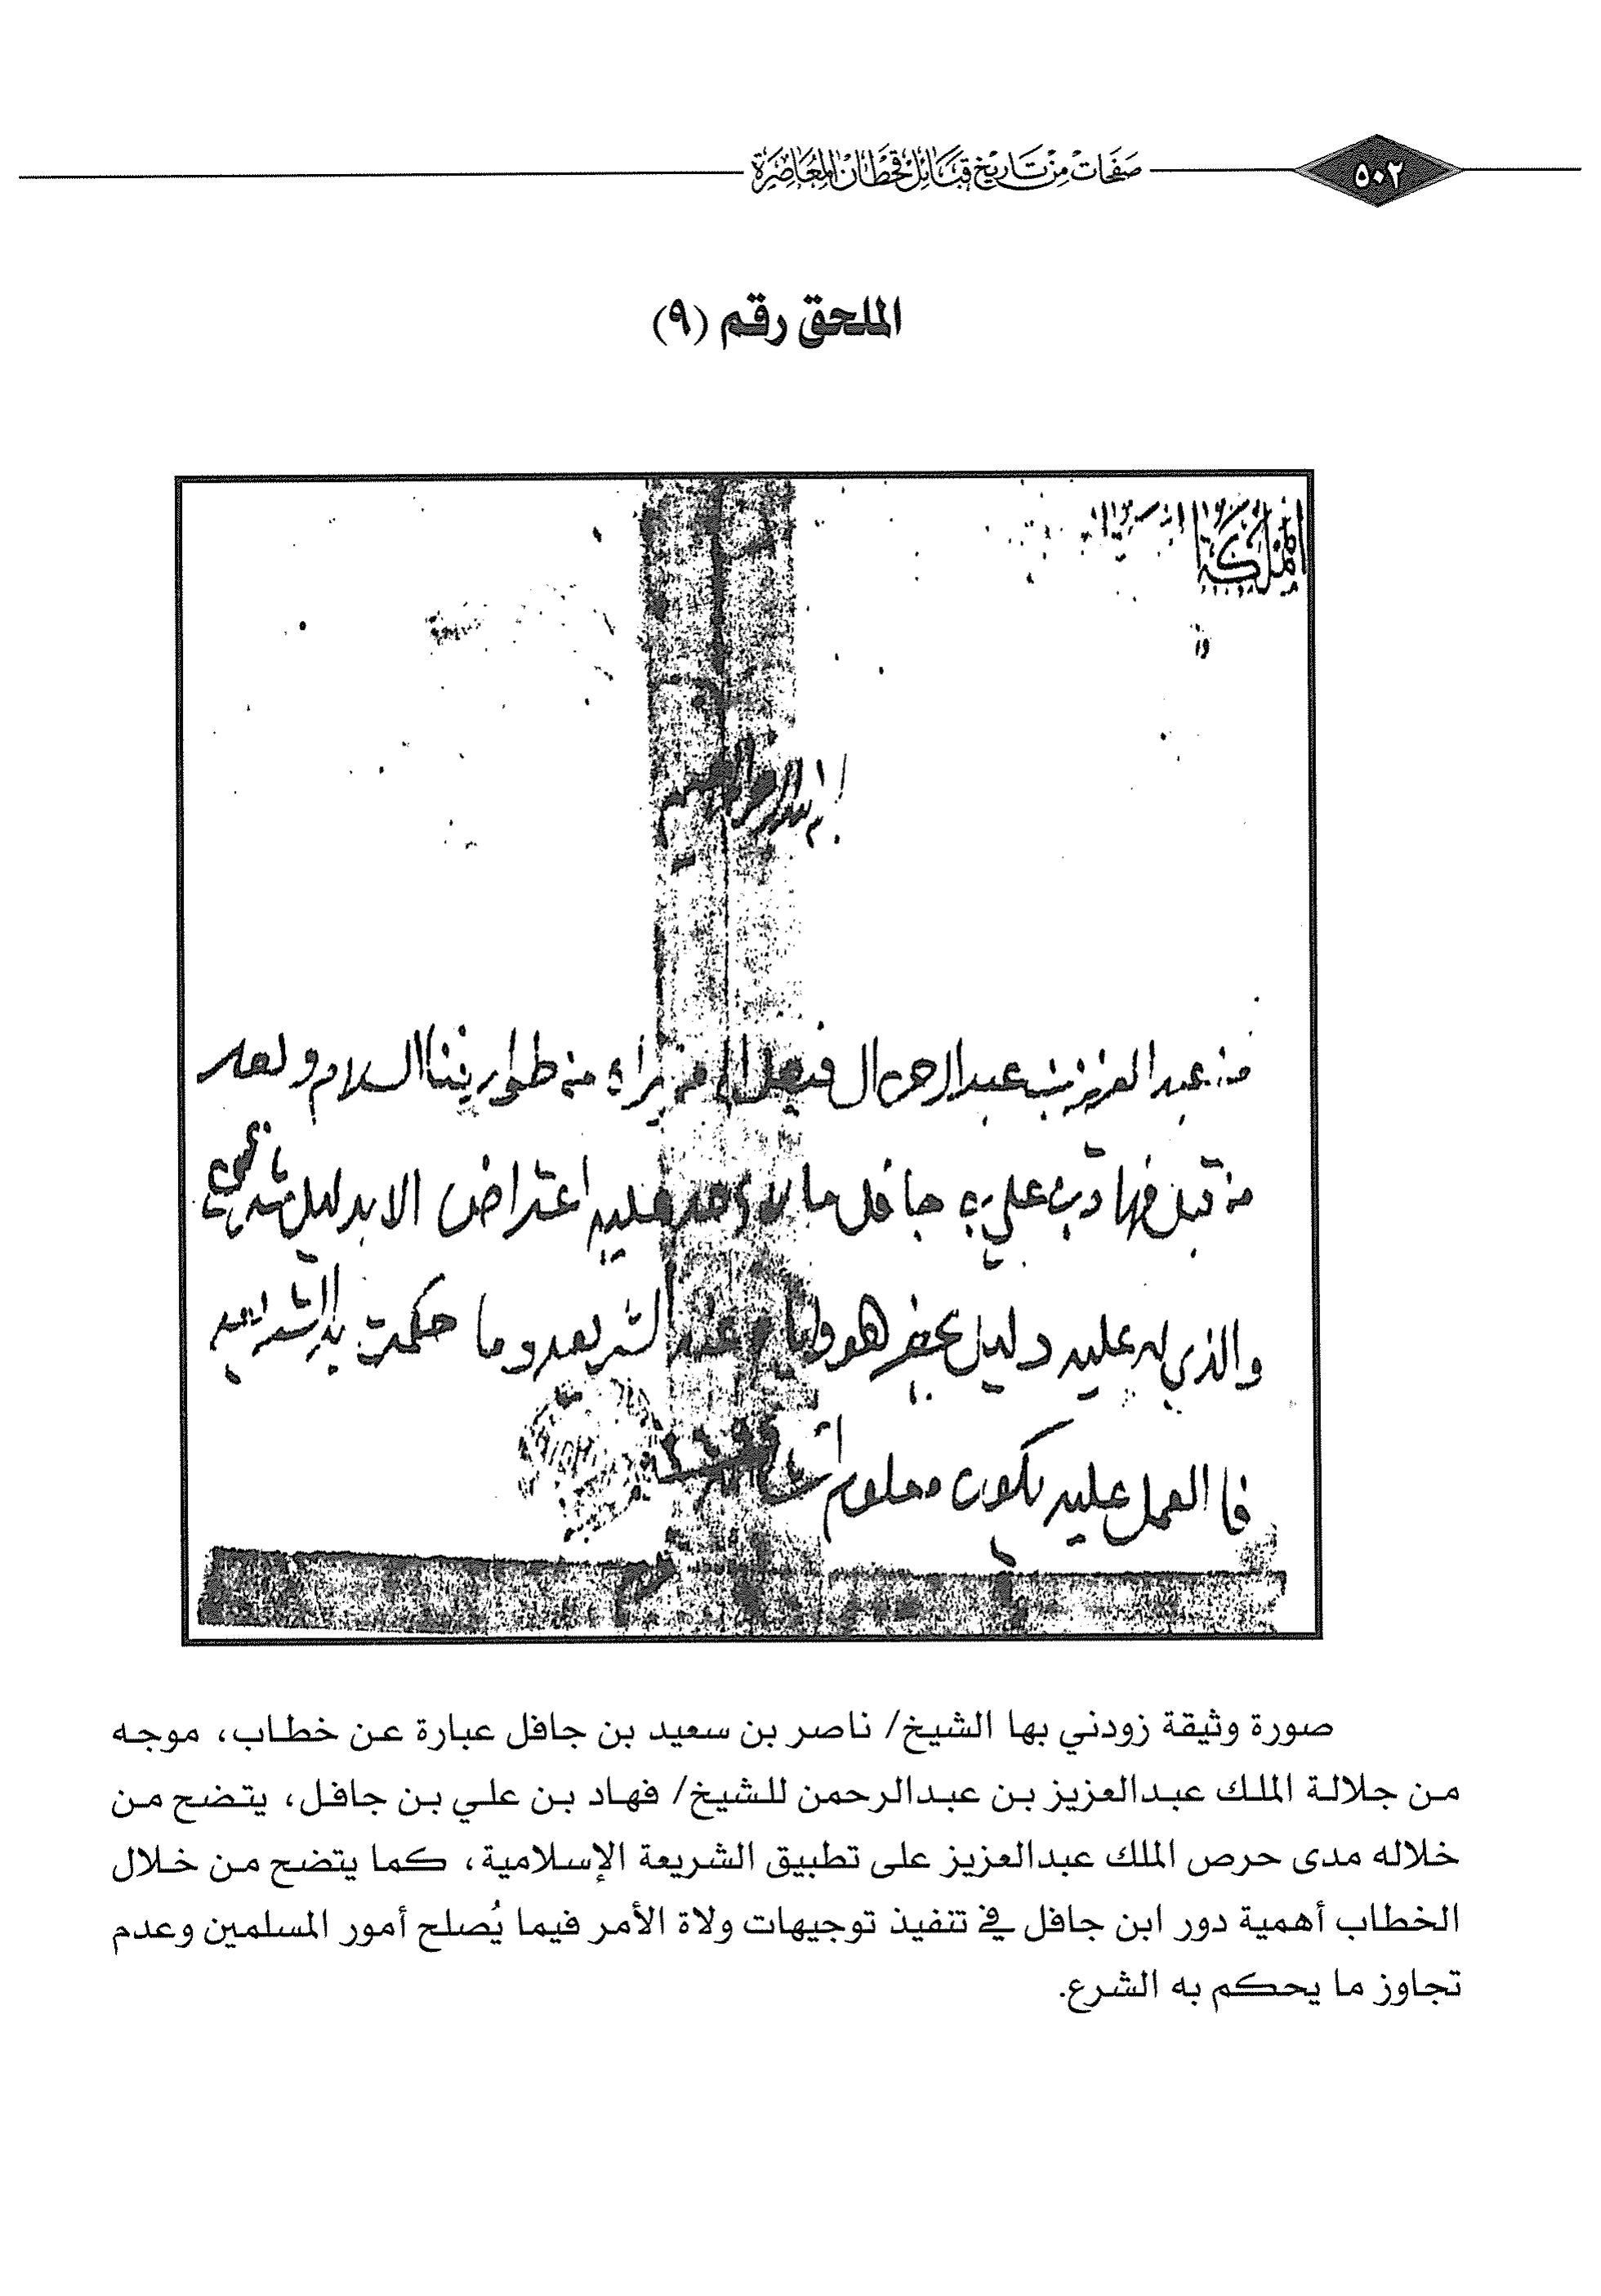 صفحات من تاريخ قبائل قحطان المعاصرة
٥٠٢
الملحق رقم (٩)
المملكة
من عبد العزيز بن عبد الرحمن ال فيصل الى من يراه من طوارفنا السلام وبعد
من قبل فهاد بن علي بن جافل ما عليه اعتراض الا بدليل شرعي
والذي له عليه دليل يحضر هو واياه عند الشريعه وما حكمت به الشريعه
فا العمل عليه يكون معلوم
صورة وثيقة زودني بها الشيخ/ ناصر بن سعيد بن جافل عبارة عن خطاب، موجه
من جلالة الملك عبدالعزيز بن عبدالرحمن للشيخ/ فهاد بن علي بن جافل، يتضح من
خلاله مدى حرص الملك عبدالعزيز على تطبيق الشريعة الإسلامية، كما يتضح من خلال
الخطاب أهمية دور ابن جافل في تنفيذ توجيهات ولاة الأمر فيما يُصلح أمور المسلمين وعدم
تجاوز ما يحكم به الشرع.